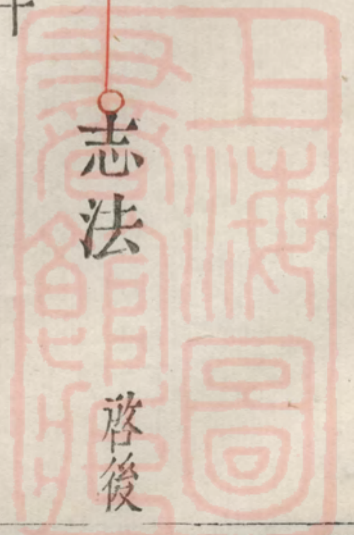 志法
啓後
上海圖
書館藏